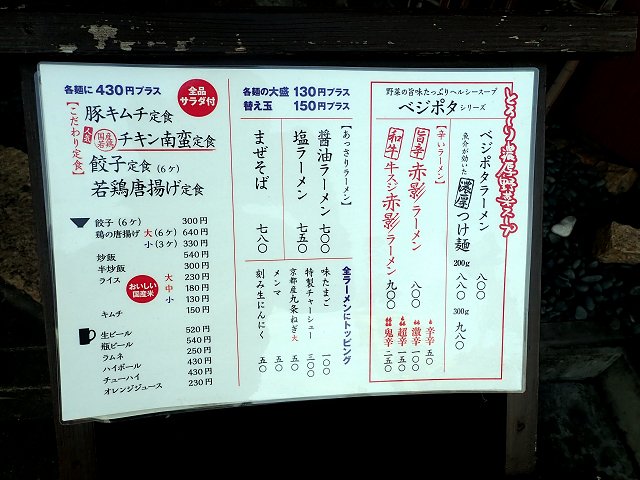 各麺に 430円プラス
全品サラダ付
【こだわり定食】
豚キムチ定食
人気 国産若鶏 チキン南蛮定食
餃子定食 (6ヶ)
若鶏唐揚げ定食
餃子 (6ヶ) 300円
鶏の唐揚げ 大 (6ヶ) 640円
小 (3ヶ) 330円
炒飯 540円
半炒飯 300円
ライス 大 230円
中 180円
小 130円
おいしい国産米
キムチ 150円
生ビール 520円
瓶ビール 540円
ラムネ 250円
ハイボール 430円
チューハイ 430円
オレンジジュース 230円
各麺の大盛 130円プラス
替え玉 150円プラス
【あっさりラーメン】
醤油ラーメン 七〇〇
塩ラーメン 七五〇
まぜそば 七八〇
全ラーメンにトッピング
味たまご 一〇〇
特製チャーシュー 三〇〇
京都産九条ねぎ大 一五〇
メンマ 五〇
刻み生にんにく 五〇
とろ〜り濃厚野菜スープ
野菜の旨味たっぷりヘルシースープ
ベジポタシリーズ
ベジポタラーメン 八〇〇
魚介が効いた 濃厚つけ麺
200g 八八〇
300g 九八〇
【辛いラーメン】
旨辛 赤影ラーメン 八〇〇
和牛 牛スジ赤影ラーメン 九〇〇
辛辛 五〇
激辛 一〇〇
超辛 一五〇
鬼辛 二五〇